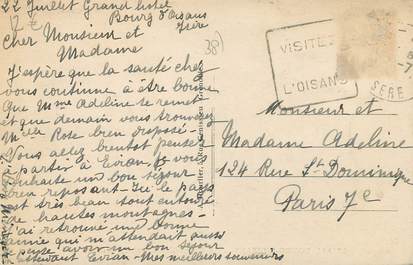 22 Juillet Grand hotel
Bourg d'Oisans
Isère
Cher Monsieur et
Madame
J'espère que la santé chez
vous continue à être bonne
Que Mme Adeline se remet
et que demain vous trouverez
Melle Rose bien disposé
Vous allez bientot penser
partir à Evian. Je vous
souhaite un bon séjour
bien reposant. Ici le pays
est très beau tout entouré
de hautes montagnes.
j'ai retrouvé une bonne
amie qui m'attendait
pense avoir un bon séjour
Evian. Mes meilleurs souvenirs
38)
VISITEZ
L'OISANS
ISERE
Monsieur et
Madame Adeline
124 Rue St Dominique
Paris 7e